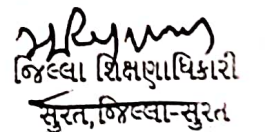 જિલ્લા શિક્ષણાધિકારી
સુરત,જિલ્લા-સુરત